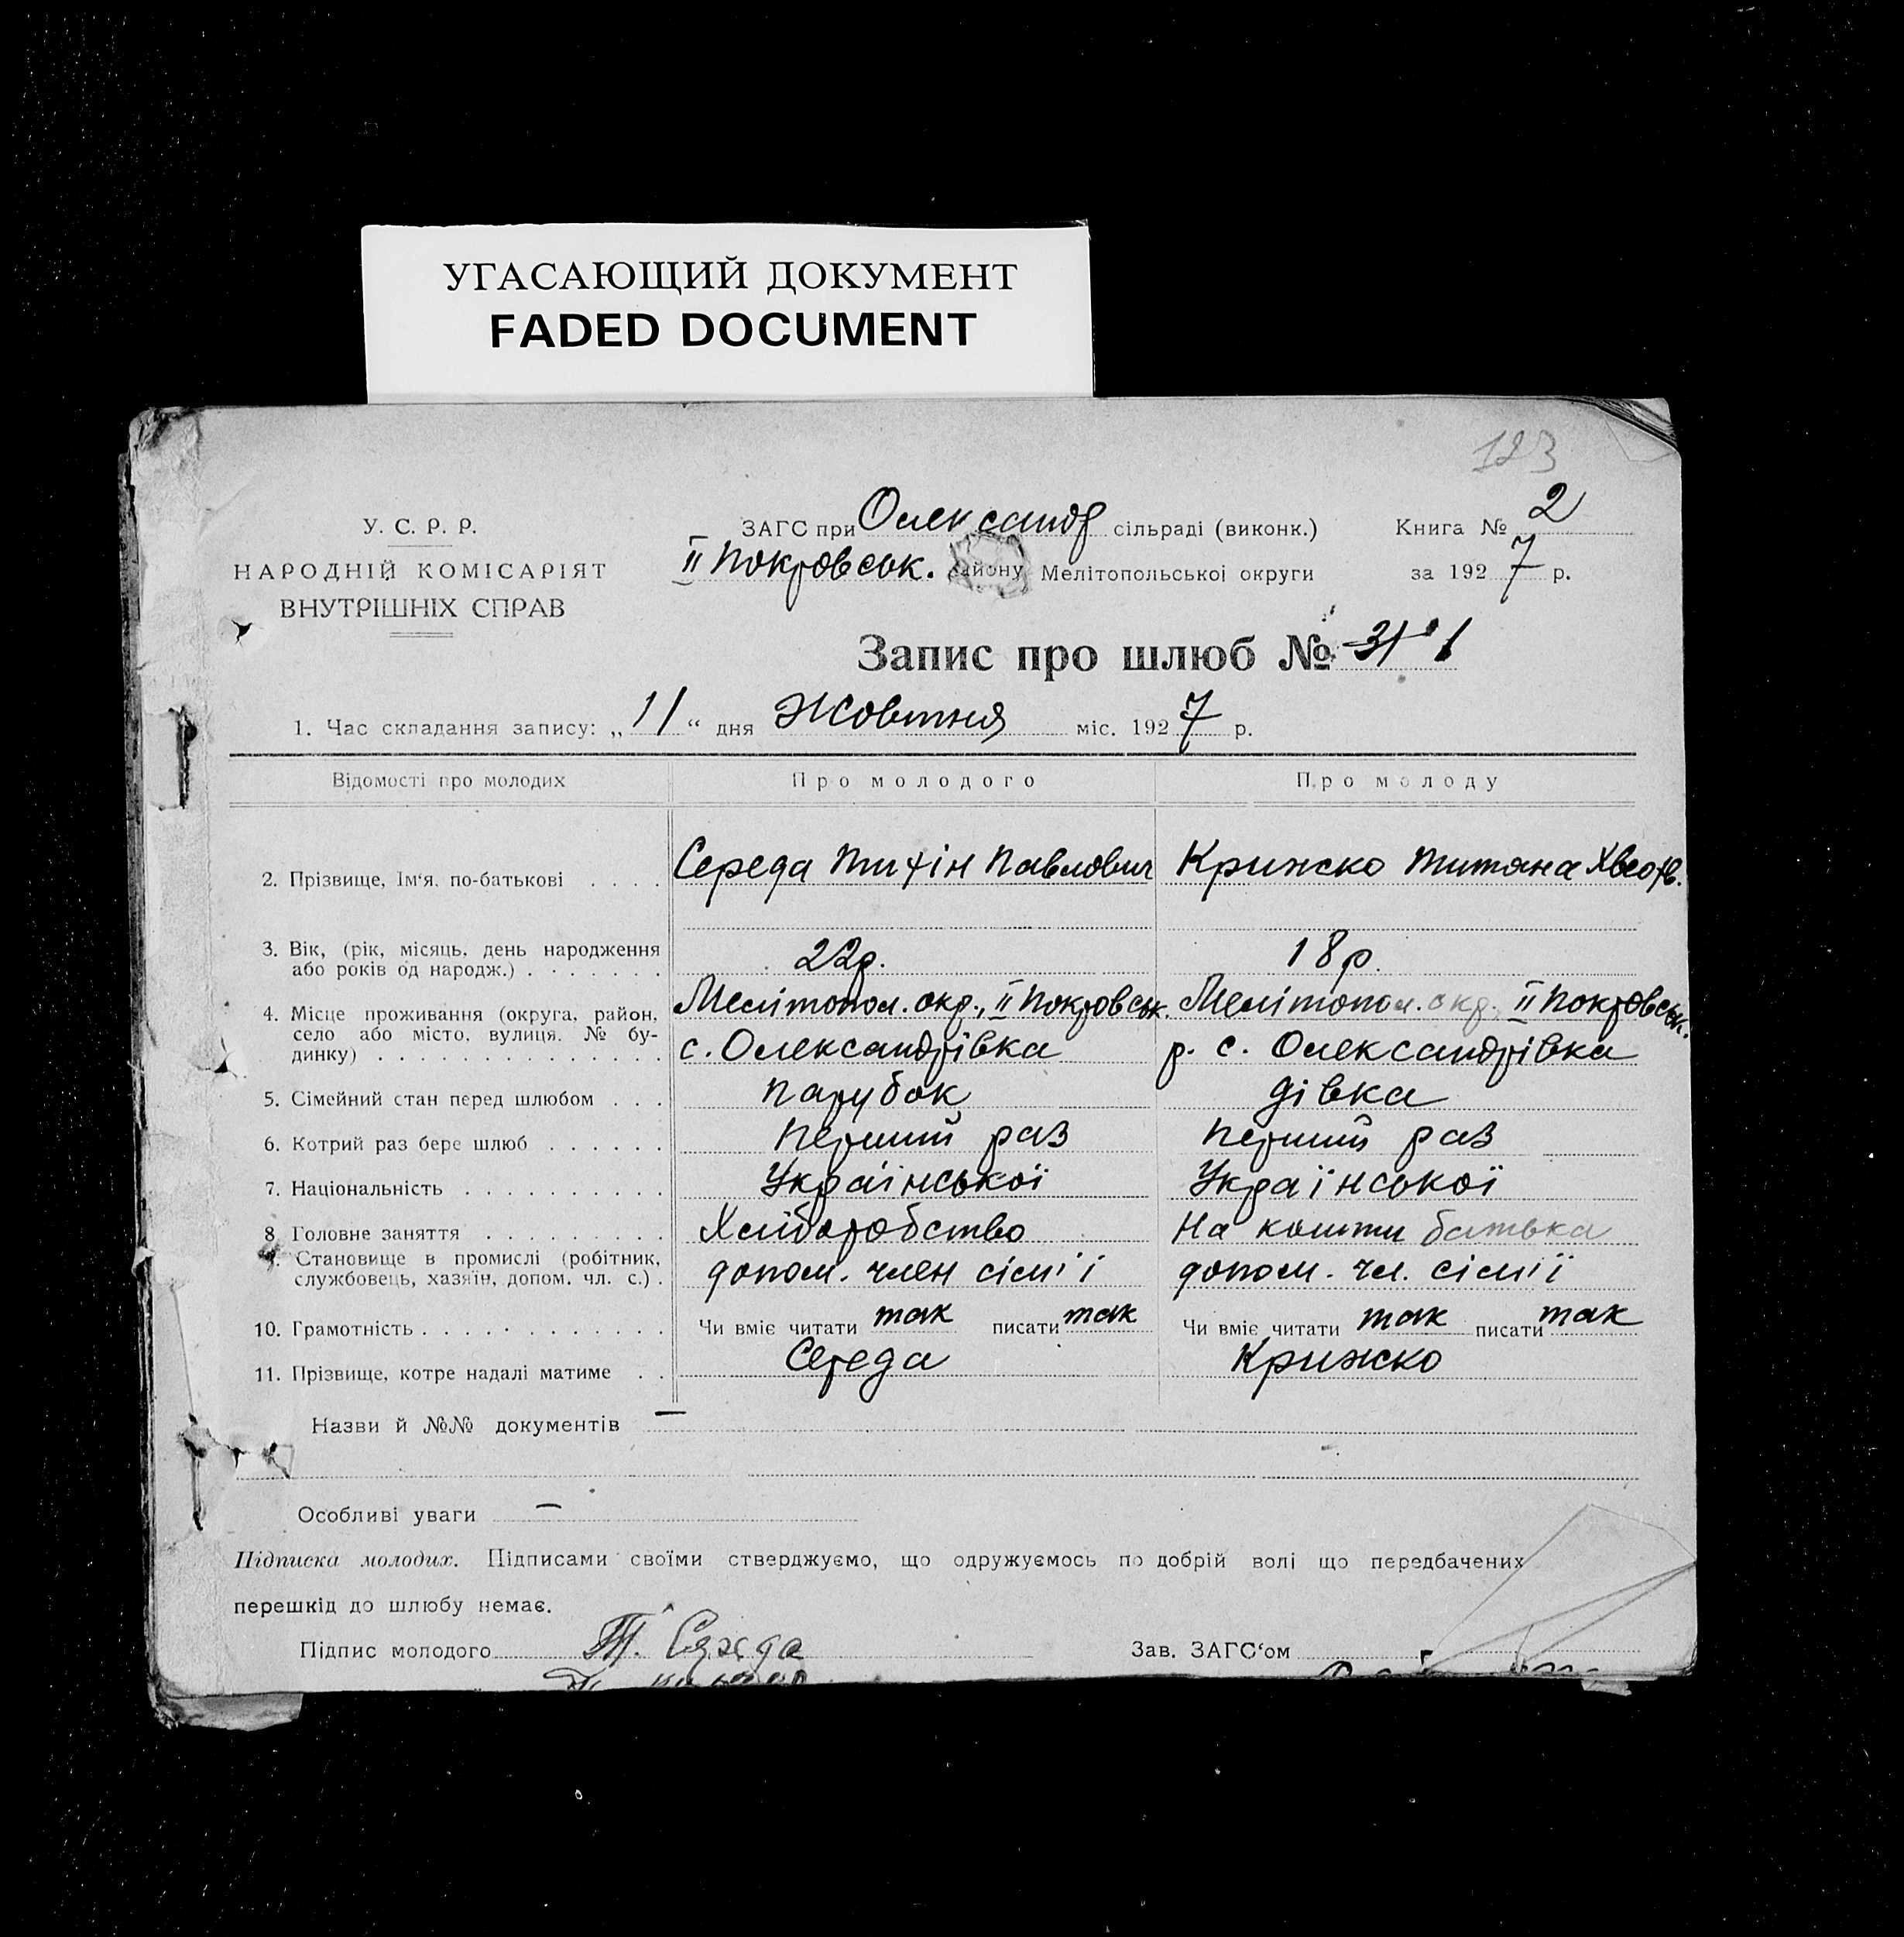 УГАСАЮЩИЙ ДОКУМЕНТ
FADED DOCUMENT
123
У. С. Р. Р.
НАРОДНІЙ КОМІСАРІЯТ
ВНУТРІШНІХ СПРАВ
ЗАГС при Олександр сільраді (виконк.)
II Покровськ. району Мелітопольської округи
Книга № 2
за 1927 р.
Запис про шлюб №
1. Час складання запису: „11“ дня Жовтня міс. 1927 р.
Відомості про молодих Про молодого Про молоду
2. Прізвище, Ім‘я, по-батькові . . . . Середа Тихін Павлович Крижско Титяна Хведв.
3. Вік, (рік, місяць, день народження
або років од народж.) . . . . . . . 22р. 18р.
4. Місце проживання (округа, район, Мелітопол. окр., II Покровськ. Мелітопол. окр., II Покровськ.
село або місто, вулиця, № бу- с. Олександрівка р. с. Олександрівка
динку) . . . . . . . . . . . . . .
5. Сімейний стан перед шлюбом . . . парубок дівка
6. Котрий раз бере шлюб . . . . . . перший раз перший раз
7. Національність . . . . . . . . . . Української Української
8 Головне заняття . . . . . . . . . Хліборобство На кошти батька
9. Становище в промислі (робітник,
службовець, хазяїн, допом. чл. с.) . допом. член сім'ї допом. чл. сім'ї
10. Грамотність . . . . . . . . . . . . Чи вміє читати так писати так Чи вміє читати так писати так
11. Прізвище, котре надалі матиме . . Середа Крижско
Назви й №№ документів —
Особливі уваги —
Підписка молодих. Підписами своїми стверджуємо, що одружуємось по добрій волі що передбачених
перешкід до шлюбу немає.
Підпис молодого Т. Середа Зав. ЗАГС‘ом